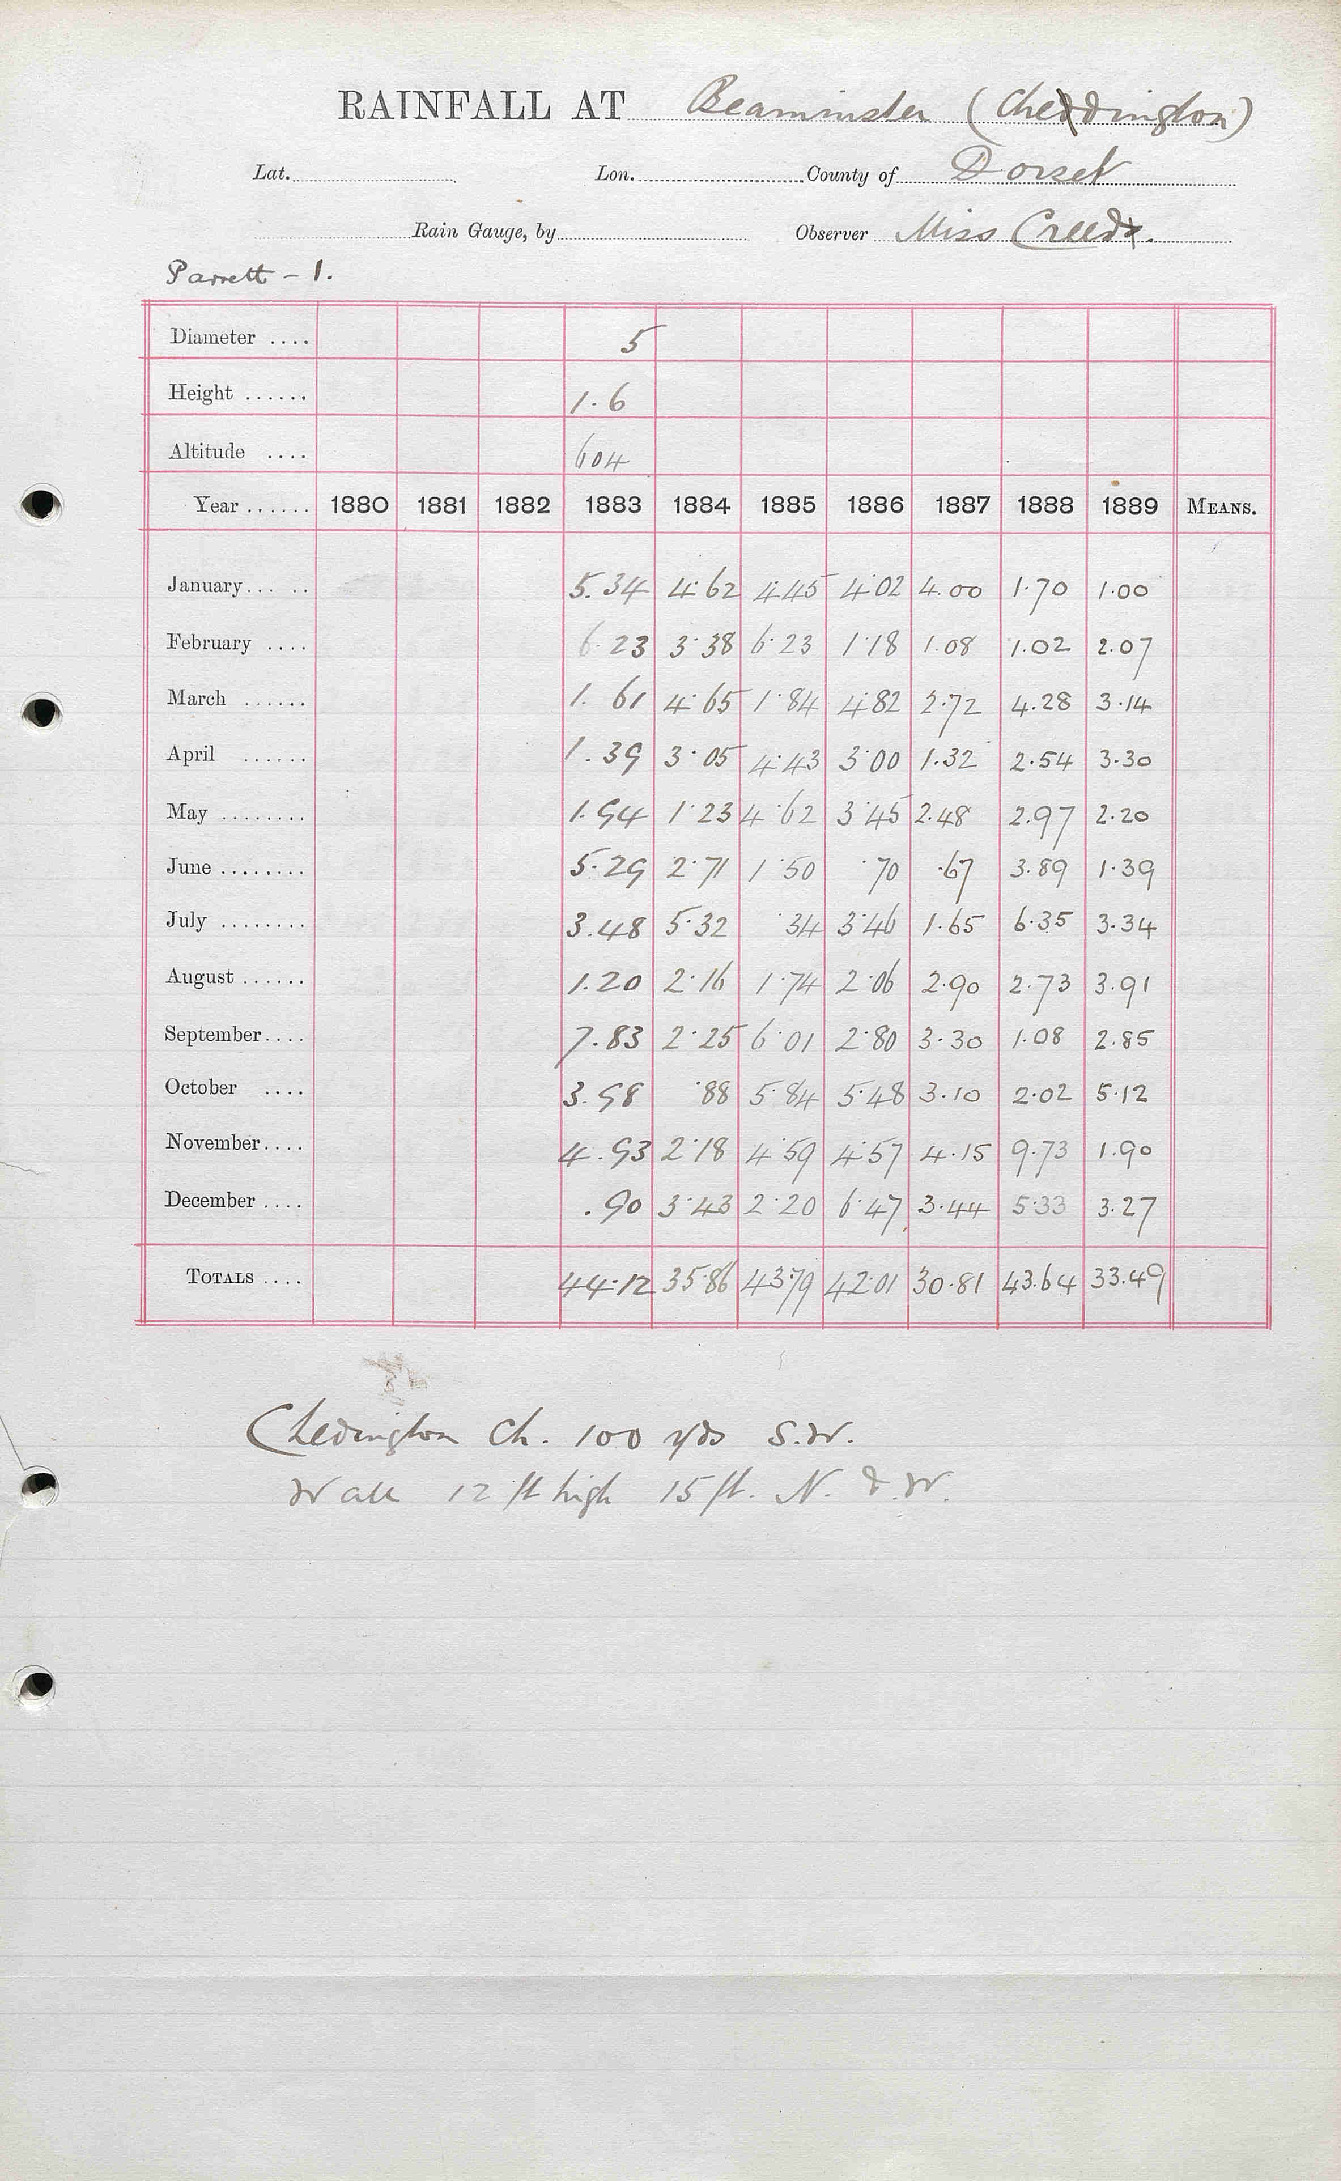 RAINFALL AT Beaminster (Cheddington)
Lat. Lon. County of Dorset
Rain Gauge, by Observer Miss Creed.
Parrett - 1.
Diameter .... 5
Height ...... 1.6
Altitude .... 604
Year ...... 1880 1881 1882 1883 1884 1885 1886 1887 1888 1889 MEANS.
January... .. 5.34 4.62 4.45 4.02 4.00 1.70 1.00
February .... 6.23 3.38 6.23 1.18 1.08 1.02 2.07
March ...... 1.61 4.65 1.84 4.82 2.72 4.28 3.14
April ...... 1.39 3.05 4.43 3.00 1.32 2.54 3.30
May ........ 1.94 1.23 4.62 3.45 2.48 2.97 2.20
June ........ 5.29 2.71 1.50 .70 .67 3.89 1.39
July ........ 3.48 5.32 .34 3.46 1.65 6.35 3.34
August ...... 1.20 2.16 1.74 2.06 2.90 2.73 3.91
September.... 7.83 2.25 6.01 2.80 3.30 1.08 2.85
October .... 3.98 .88 5.84 5.48 3.10 2.02 5.12
November.... 4.93 2.18 4.59 4.57 4.15 9.73 1.90
December .... .90 3.43 2.20 6.47 3.44 5.33 3.27
TOTALS .... 44.12 35.86 43.79 42.01 30.81 43.64 33.49
Chedington Ch. 100 yds S.W.
Wall 12 ft high 15 ft. N. & W.